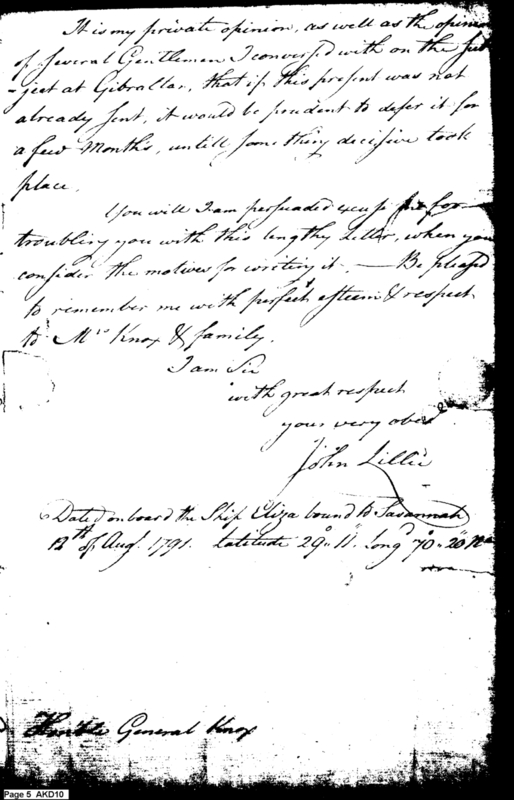 It is my private opinion, as well as the opinion
of several Gentlemen I conversed with on the sub
-ject at Gibraltar, that if this present was not
already sent, it would be prudent to defer it for
a few Months, untill some thing decisive took
place.
You will I am persuaded excuse me for
troubling you with this lengthy Letter, when you
consider the motives for writing it. — Be pleased
to remember me with perfect esteem & respect
to Mrs Knox & family.
I am Sir
with great respect
your very obed
John Lillie
Dated on board the Ship Eliza bound to Savannah
12th of Augt. 1791. Latitude 29°" 11". Longd 70°" 20"
Honble General Knox
Page 5 AKD10